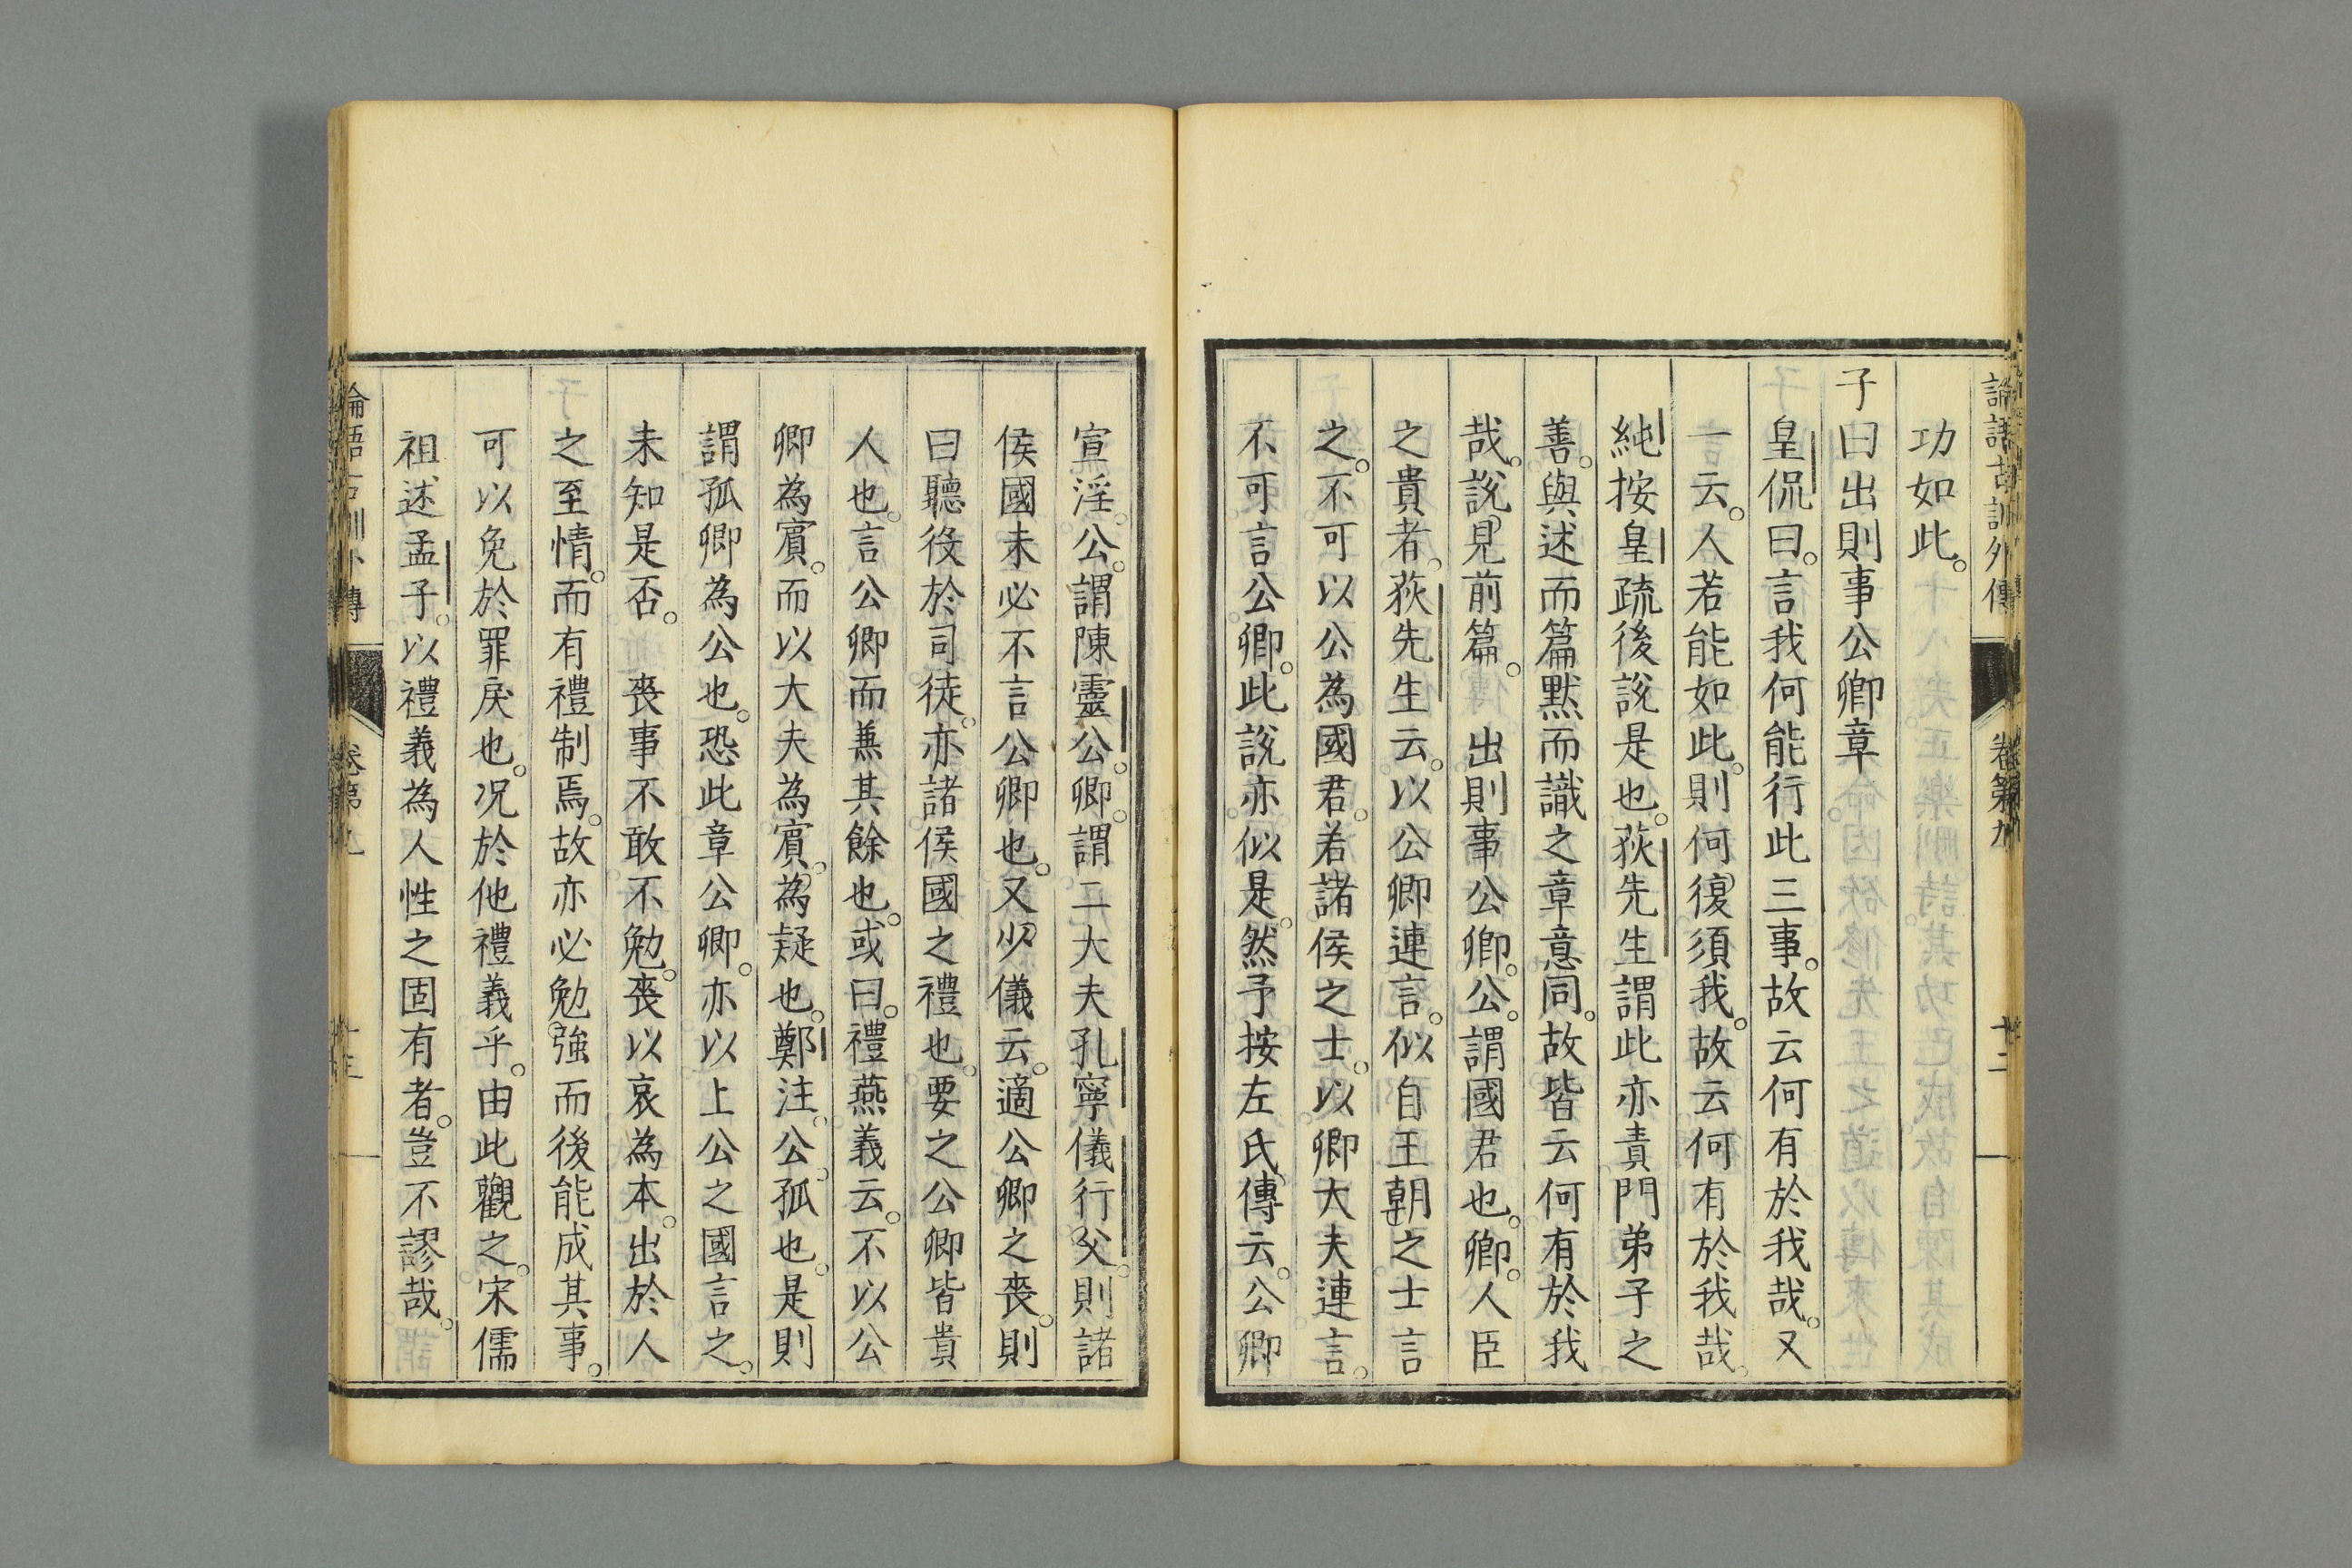 論語古訓外傳 卷第九 十二
功如此。
子曰出則事公卿章
皇侃曰。言我何能行此三事。故云何有於我哉。又
一云。人若能如此。則何復須我。故云何有於我哉。
純按皇疏後說是也。荻先生謂此亦責門弟子之
善。與述而篇默而識之章意同。故皆云何有於我
哉。說見前篇。 出則事公卿。公。謂國君也。卿。人臣
之貴者。荻先生云。以公卿連言。似自王朝之士言
之。不可以公為國君。若諸侯之士。以卿大夫連言。
不可言公卿。此說亦似是。然予按左氏傳云。公卿
宣淫。公。謂陳靈公。卿。謂二大夫孔寧儀行父。則諸
侯國未必不言公卿也。又少儀云。適公卿之喪。則
曰聽役於司徒。亦諸侯國之禮也。要之公卿皆貴
人也。言公卿而兼其餘也。或曰。禮燕義云。不以公
卿為賓。而以大夫為賓。為疑也。鄭注。公。孤也。是則
謂孤卿為公也。恐此章公卿。亦以上公之國言之。
未知是否。 喪事不敢不勉。喪以哀為本。出於人
之至情。而有禮制焉。故亦必勉強而後能成其事。
可以免於罪戾也。况於他禮義乎。由此觀之。宋儒
祖述孟子。以禮義為人性之固有者。豈不謬哉。